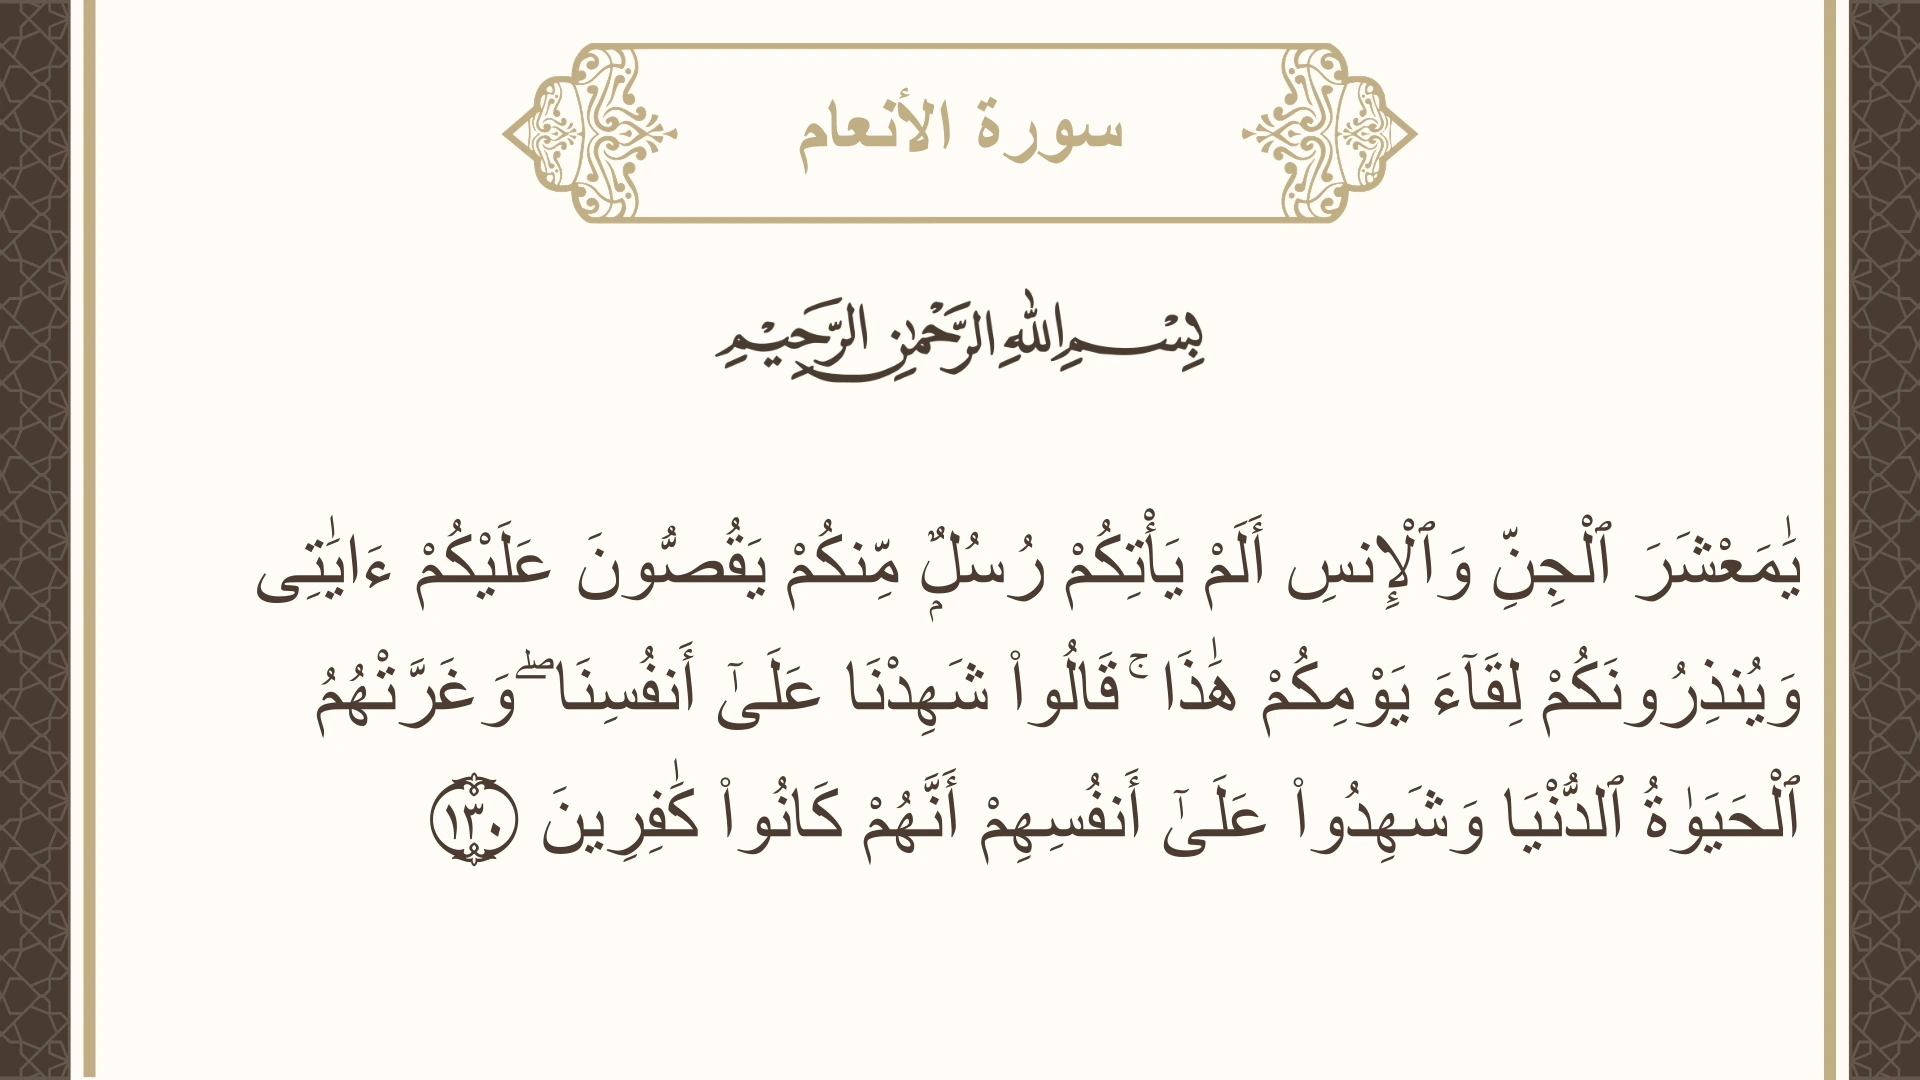 سورة الأنعام
بِسْمِ اللهِ الرَّحْمٰنِ الرَّحِيْمِ
يَٰمَعْشَرَ ٱلْجِنِّ وَٱلْإِنسِ أَلَمْ يَأْتِكُمْ رُسُلٌۭ مِّنكُمْ يَقُصُّونَ عَلَيْكُمْ ءَايَٰتِى
وَيُنذِرُونَكُمْ لِقَآءَ يَوْمِكُمْ هَٰذَا ۚ قَالُوا۟ شَهِدْنَا عَلَىٰٓ أَنفُسِنَا ۖ وَغَرَّتْهُمُ
ٱلْحَيَوٰةُ ٱلدُّنْيَا وَشَهِدُوا۟ عَلَىٰٓ أَنفُسِهِمْ أَنَّهُمْ كَانُوا۟ كَٰفِرِينَ ١٣٠